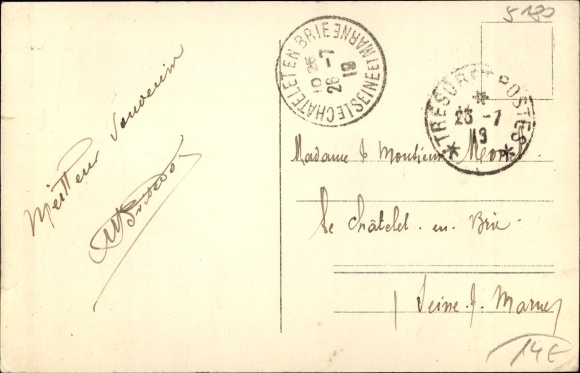 5180
LE CHATELET EN BRIE (SEINE ET MARNE)
26 -7
19
TRESOR ET POSTES
*
23 -7
* 13 *
Meilleur Souvenir
Madame & Monsieur
Le Châtelet. en. Brie
Seine. & Marne
14E